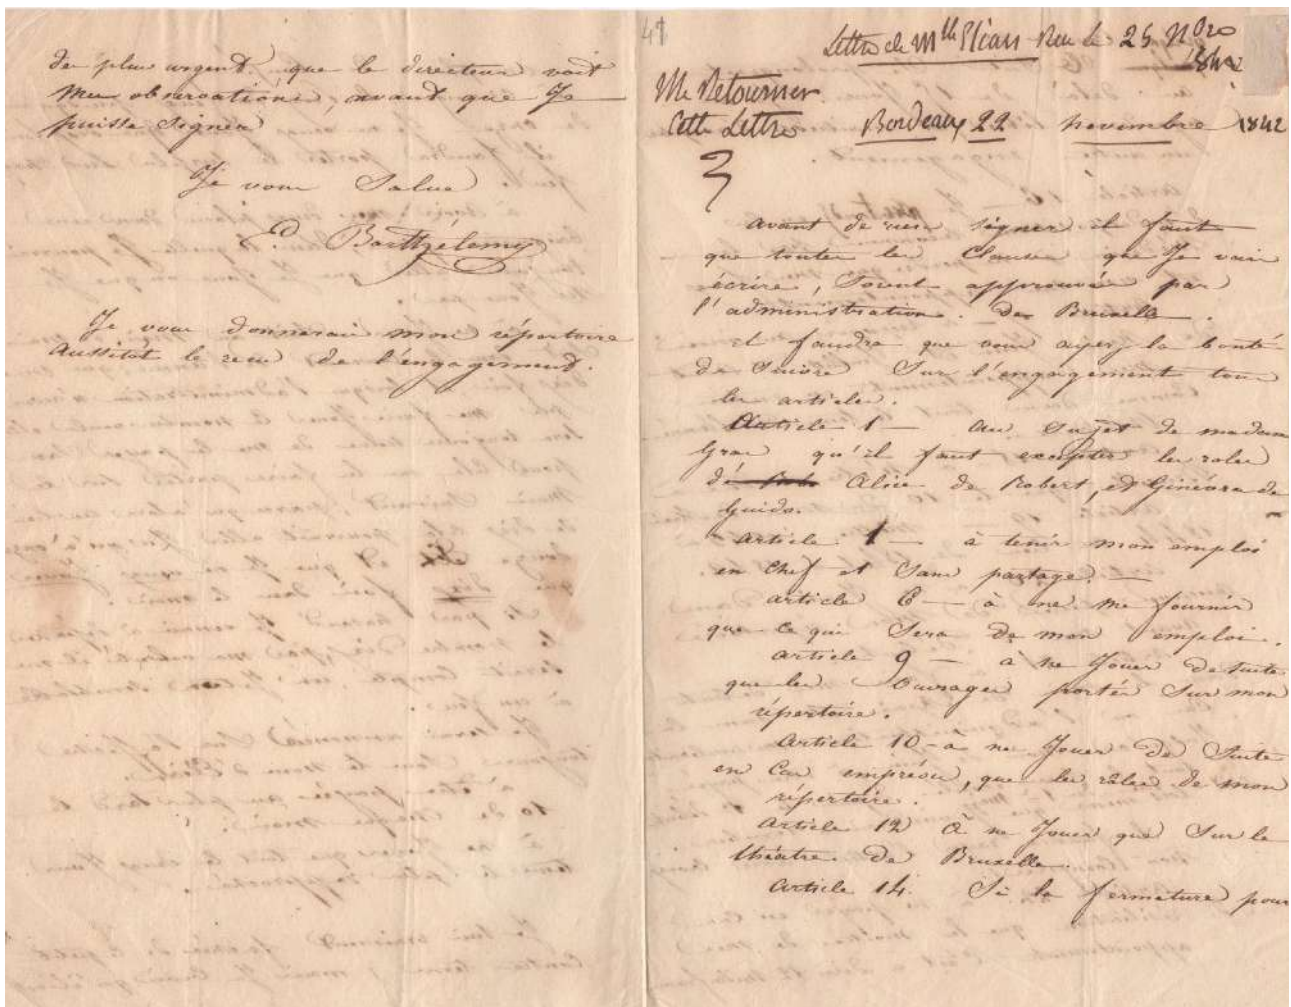 de plus urgent que le directeur voit
mes observations, avant que Je
puisse signer
Je vous Salue
E. Barthélemy
Je vous donnerai mon répertoire
aussitôt le recu de l'engagement.
41
Lettre de Mlle Elian Reu le 25 Nbre
1842
Me Retourner
Cette Lettre
Bordeaux 22 novembre 1842
avant de rien signer il faut
que toutes les Clauses que Je vais
écrire, Soient approuvées par
l'administration. de Bruxelle.
il faudra que vous ayez la bonté
de Suivre Sur l'engagement tous
les articles.
Article 1 — au Sujet de madame
Gras qu'il faut excepter les roles
d' Alice de Robert, et Ginévra de
Guido.
article 1 — à tenir mon emploi
en chef et Sans partage. —
article 6 — à ne me fournir
que ce qui Sera de mon emploi.
article 9 — à ne Jouer de suite
que les Ouvrages portés Sur mon
répertoire.
article 10 — à ne Jouer de Suite
en Cas, que les rôles de mon
répertoire.
article 12 à ne Jouer que Sur le
théatre de Bruxelle.
article 14. Si la fermeture pour